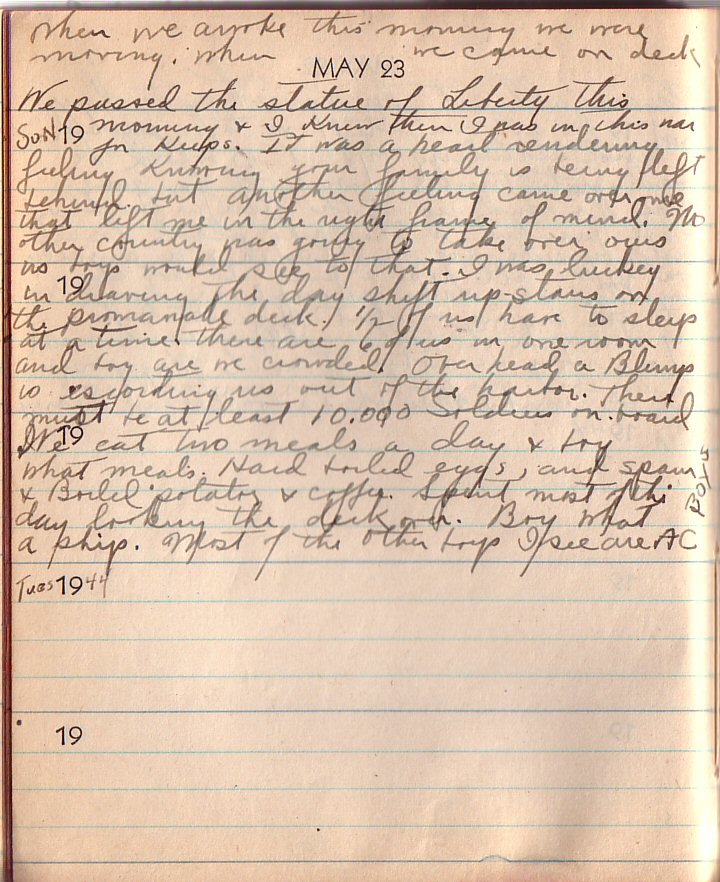 When we awoke this morning we were
moving. When we came on deck
MAY 23
We passed the statue of Liberty this
SUN 19 morning & I knew then I was in this war
for Keeps. It was a heart rendering
feeling Knowing your family is being left
behind. but another feeling came over me
that left me in the right frame of mind. No
other country was going to take over ours
us boys would see to that. I was luckey
19 in drawing the day shift up-stairs on
the promanade deck. 1/2 of us have to sleep
at a time. there are 6 of us in one room
and boy are we crowded. Over head a Blimp
is escorting us out of the harbor. There
must be at least 10.000 Soldiers on board
19 We eat two meals a day & boy
what meals. Hard boiled eggs, and spam
& Boiled potatoes & coffee. Spent most of the
day looking the deck over. Boy what
a ship. Most of the other boys I see are AC
BOYS
Tues 1944
19